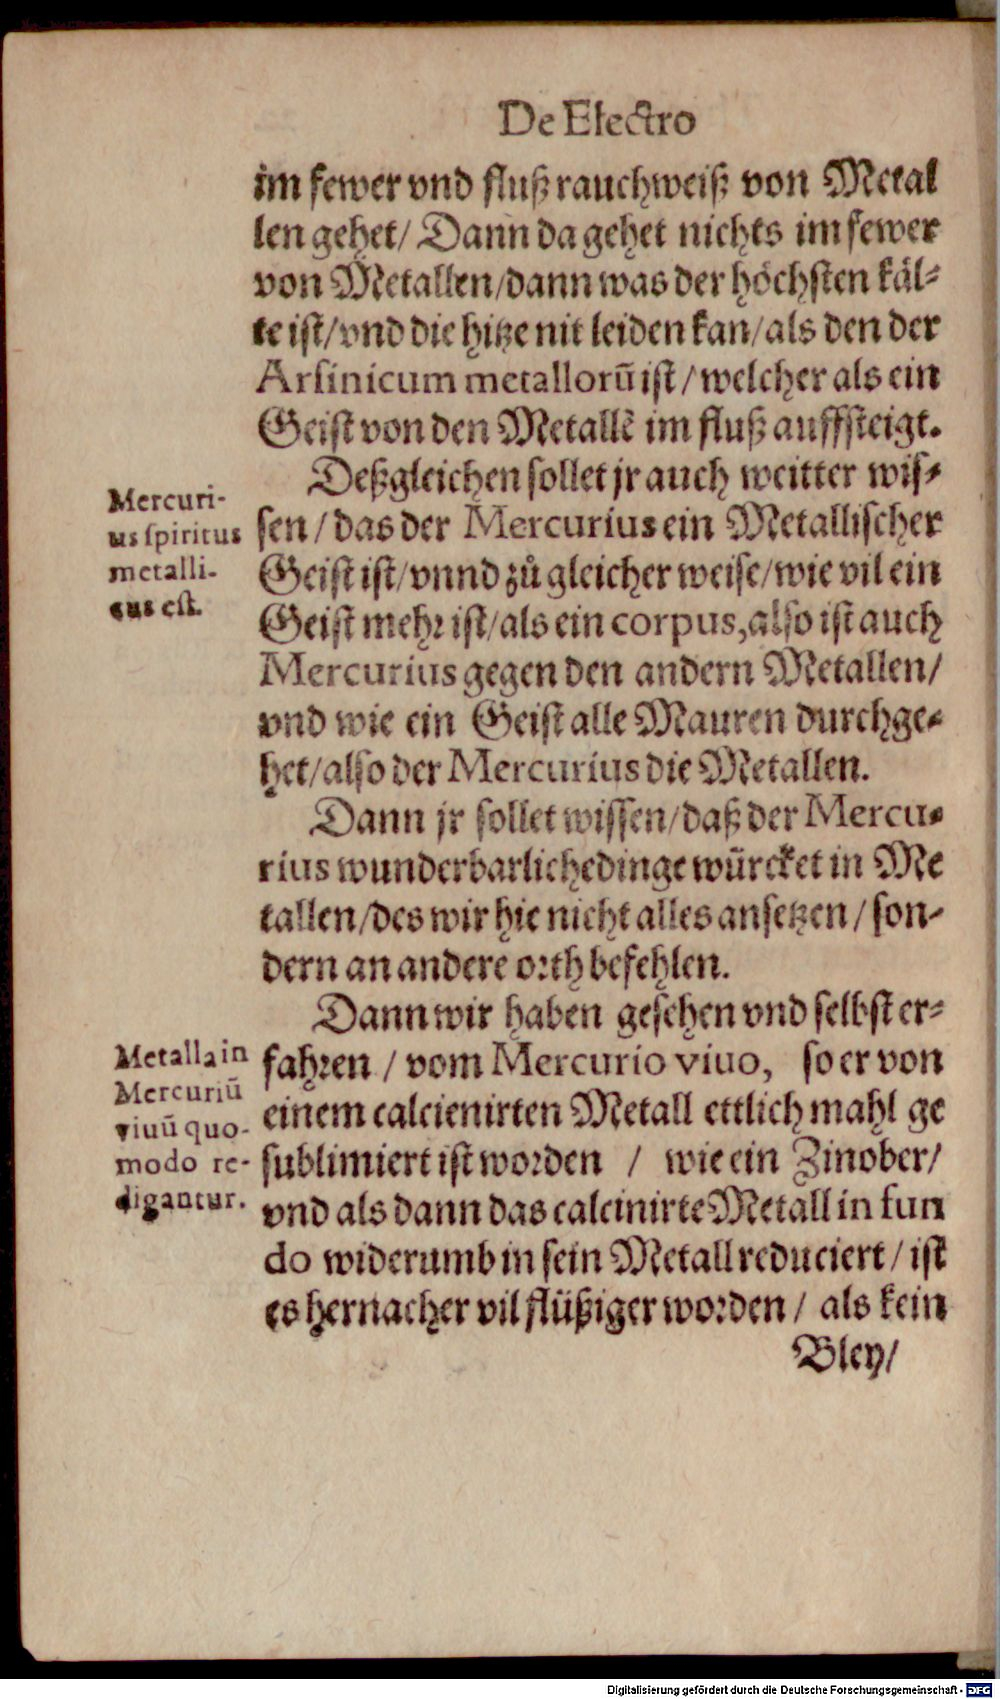 De Electro
im fewer vnd fluß rauchweiß von Metal
len gehet/ Dann da gehet nichts im fewer
von Metallen/dann was der höchsten käl-
te ist/vnd die hitze nit leiden kan/als den der
Arsinicum metallorū ist/welcher als ein
Geist von den Metallē im fluß auffsteigt.
Deßgleichen sollet jr auch weitter wis-
sen/das der Mercurius ein Metallischer
Geist ist/vnnd zů gleicher weise/wie vil ein
Geist mehr ist/als ein corpus,also ist auch
Mercurius gegen den andern Metallen/
vnd wie ein Geist alle Mauren durchge-
het/also der Mercurius die Metallen.
Mercuri-
us spiritus
metalli-
cus est.
Dann jr sollet wissen/daß der Mercu-
rius wunderbarliche dinge würcket in Me
tallen/des wir hie nicht alles ansetzen/son-
dern an andere orth befehlen.
Dann wir haben gesehen vnd selbst er-
fahren / vom Mercurio viuo, so er von
einem calcienirten Metall ettlich mahl ge
sublimiert ist worden / wie ein Zinober/
vnd als dann das calcinirte Metall in fun
do widerumb in sein Metall reduciert/ist
es hernacher vil flüßiger worden/ als kein
Metalla in
Mercuriū
viuū quo-
modo re-
digantur.
Bley/
Digitalisierung gefördert durch die Deutsche Forschungsgemeinschaft - DFG